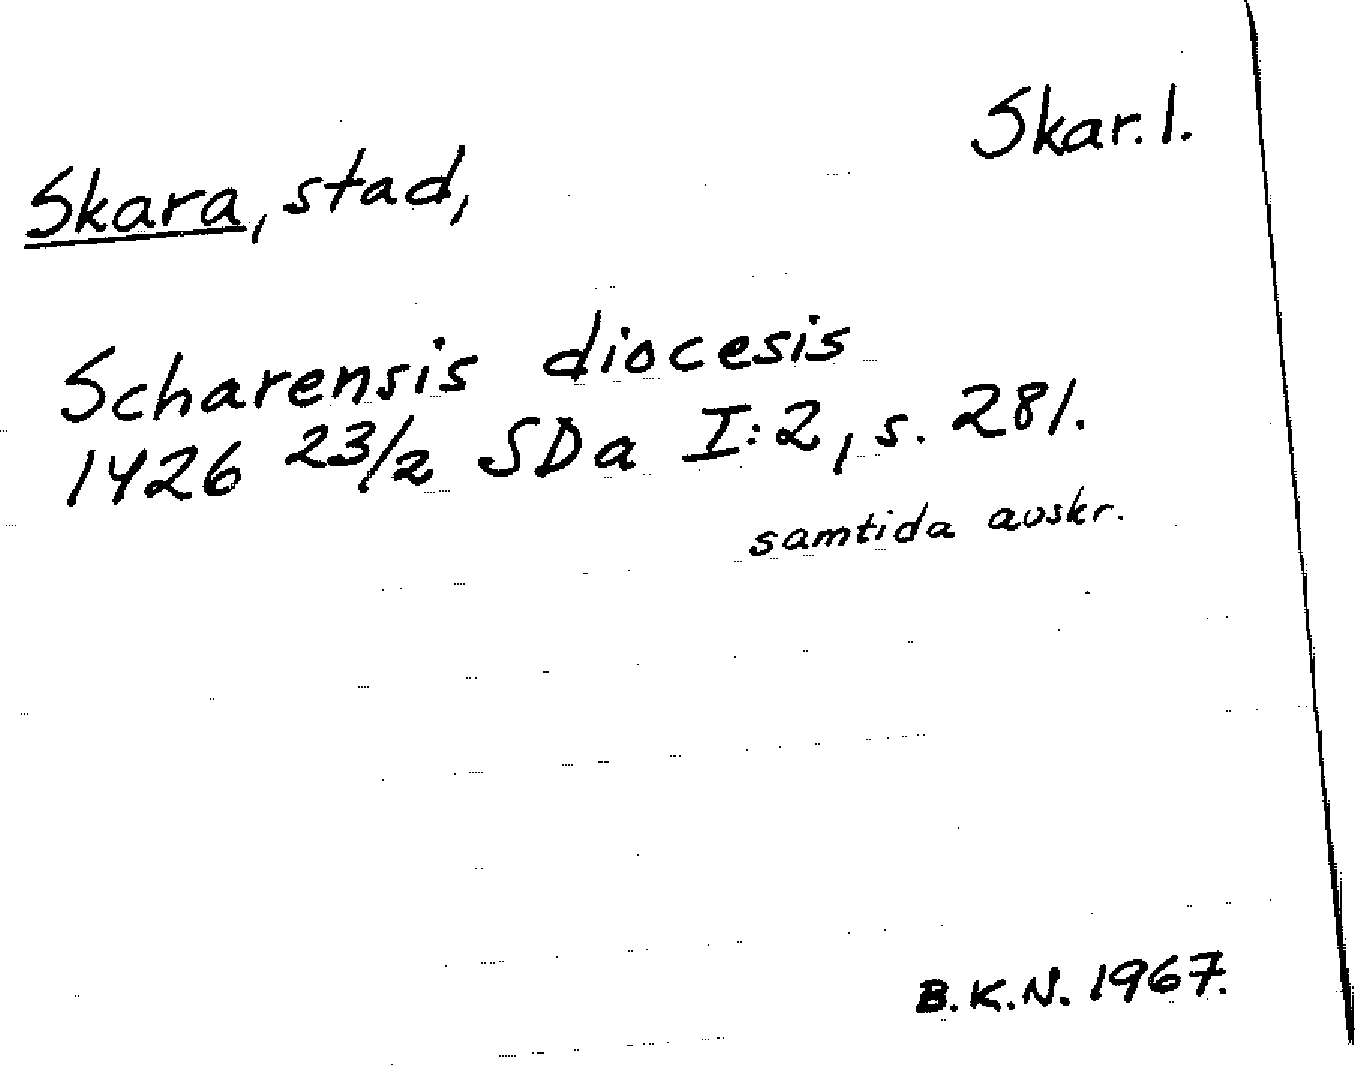 Skar. 1.
Skara, stad,
Scharensis diocesis
1426 23/2 SDa I:2, s. 281.
samtida avskr.
B.K.N. 1967.